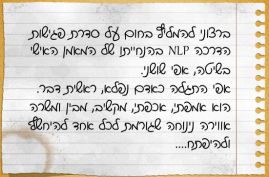 ברצוני להמליץ בחום על סדרת פגישות
הדרכה NLP בהנחייתו של המאמן האישי
בשיטה, אפי שושני.
אפי התגלה כאדם נפלא, ראשית דבר.
הוא אמפתי, אכפתי, מקשיב, מבין ומשרה
אווירה נינוחה שגורמת לכל אחד להיחשף
ולהיפתח....